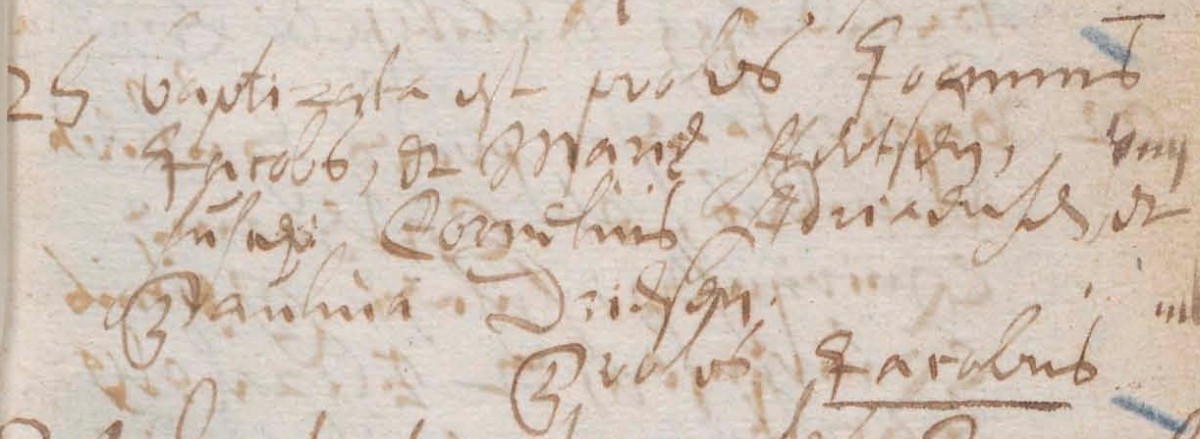 25 baptizata est proles Joannis
Jacobs, et Marie
susceptr Cornelius Adriaensen, et
Paulina Driesen.
Proles Jacobus